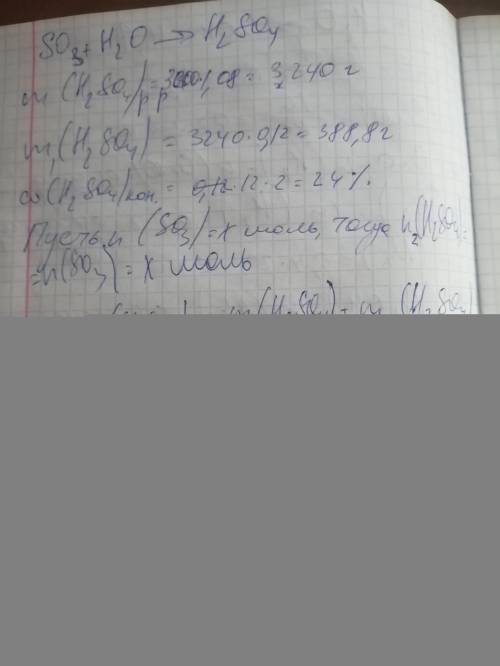 SO₃ + H₂O → H₂SO₄
m (H₂SO₄) р-р = 3000·1,08 = 3240 г
m₁(H₂SO₄) = 3240·0,12 = 388,8 г
ω(H₂SO₄) кон. = 12·2 = 24%.
Пусть n (SO₃) = x моль, тогда n₂(H₂SO₄) =
= n(SO₃) = x моль